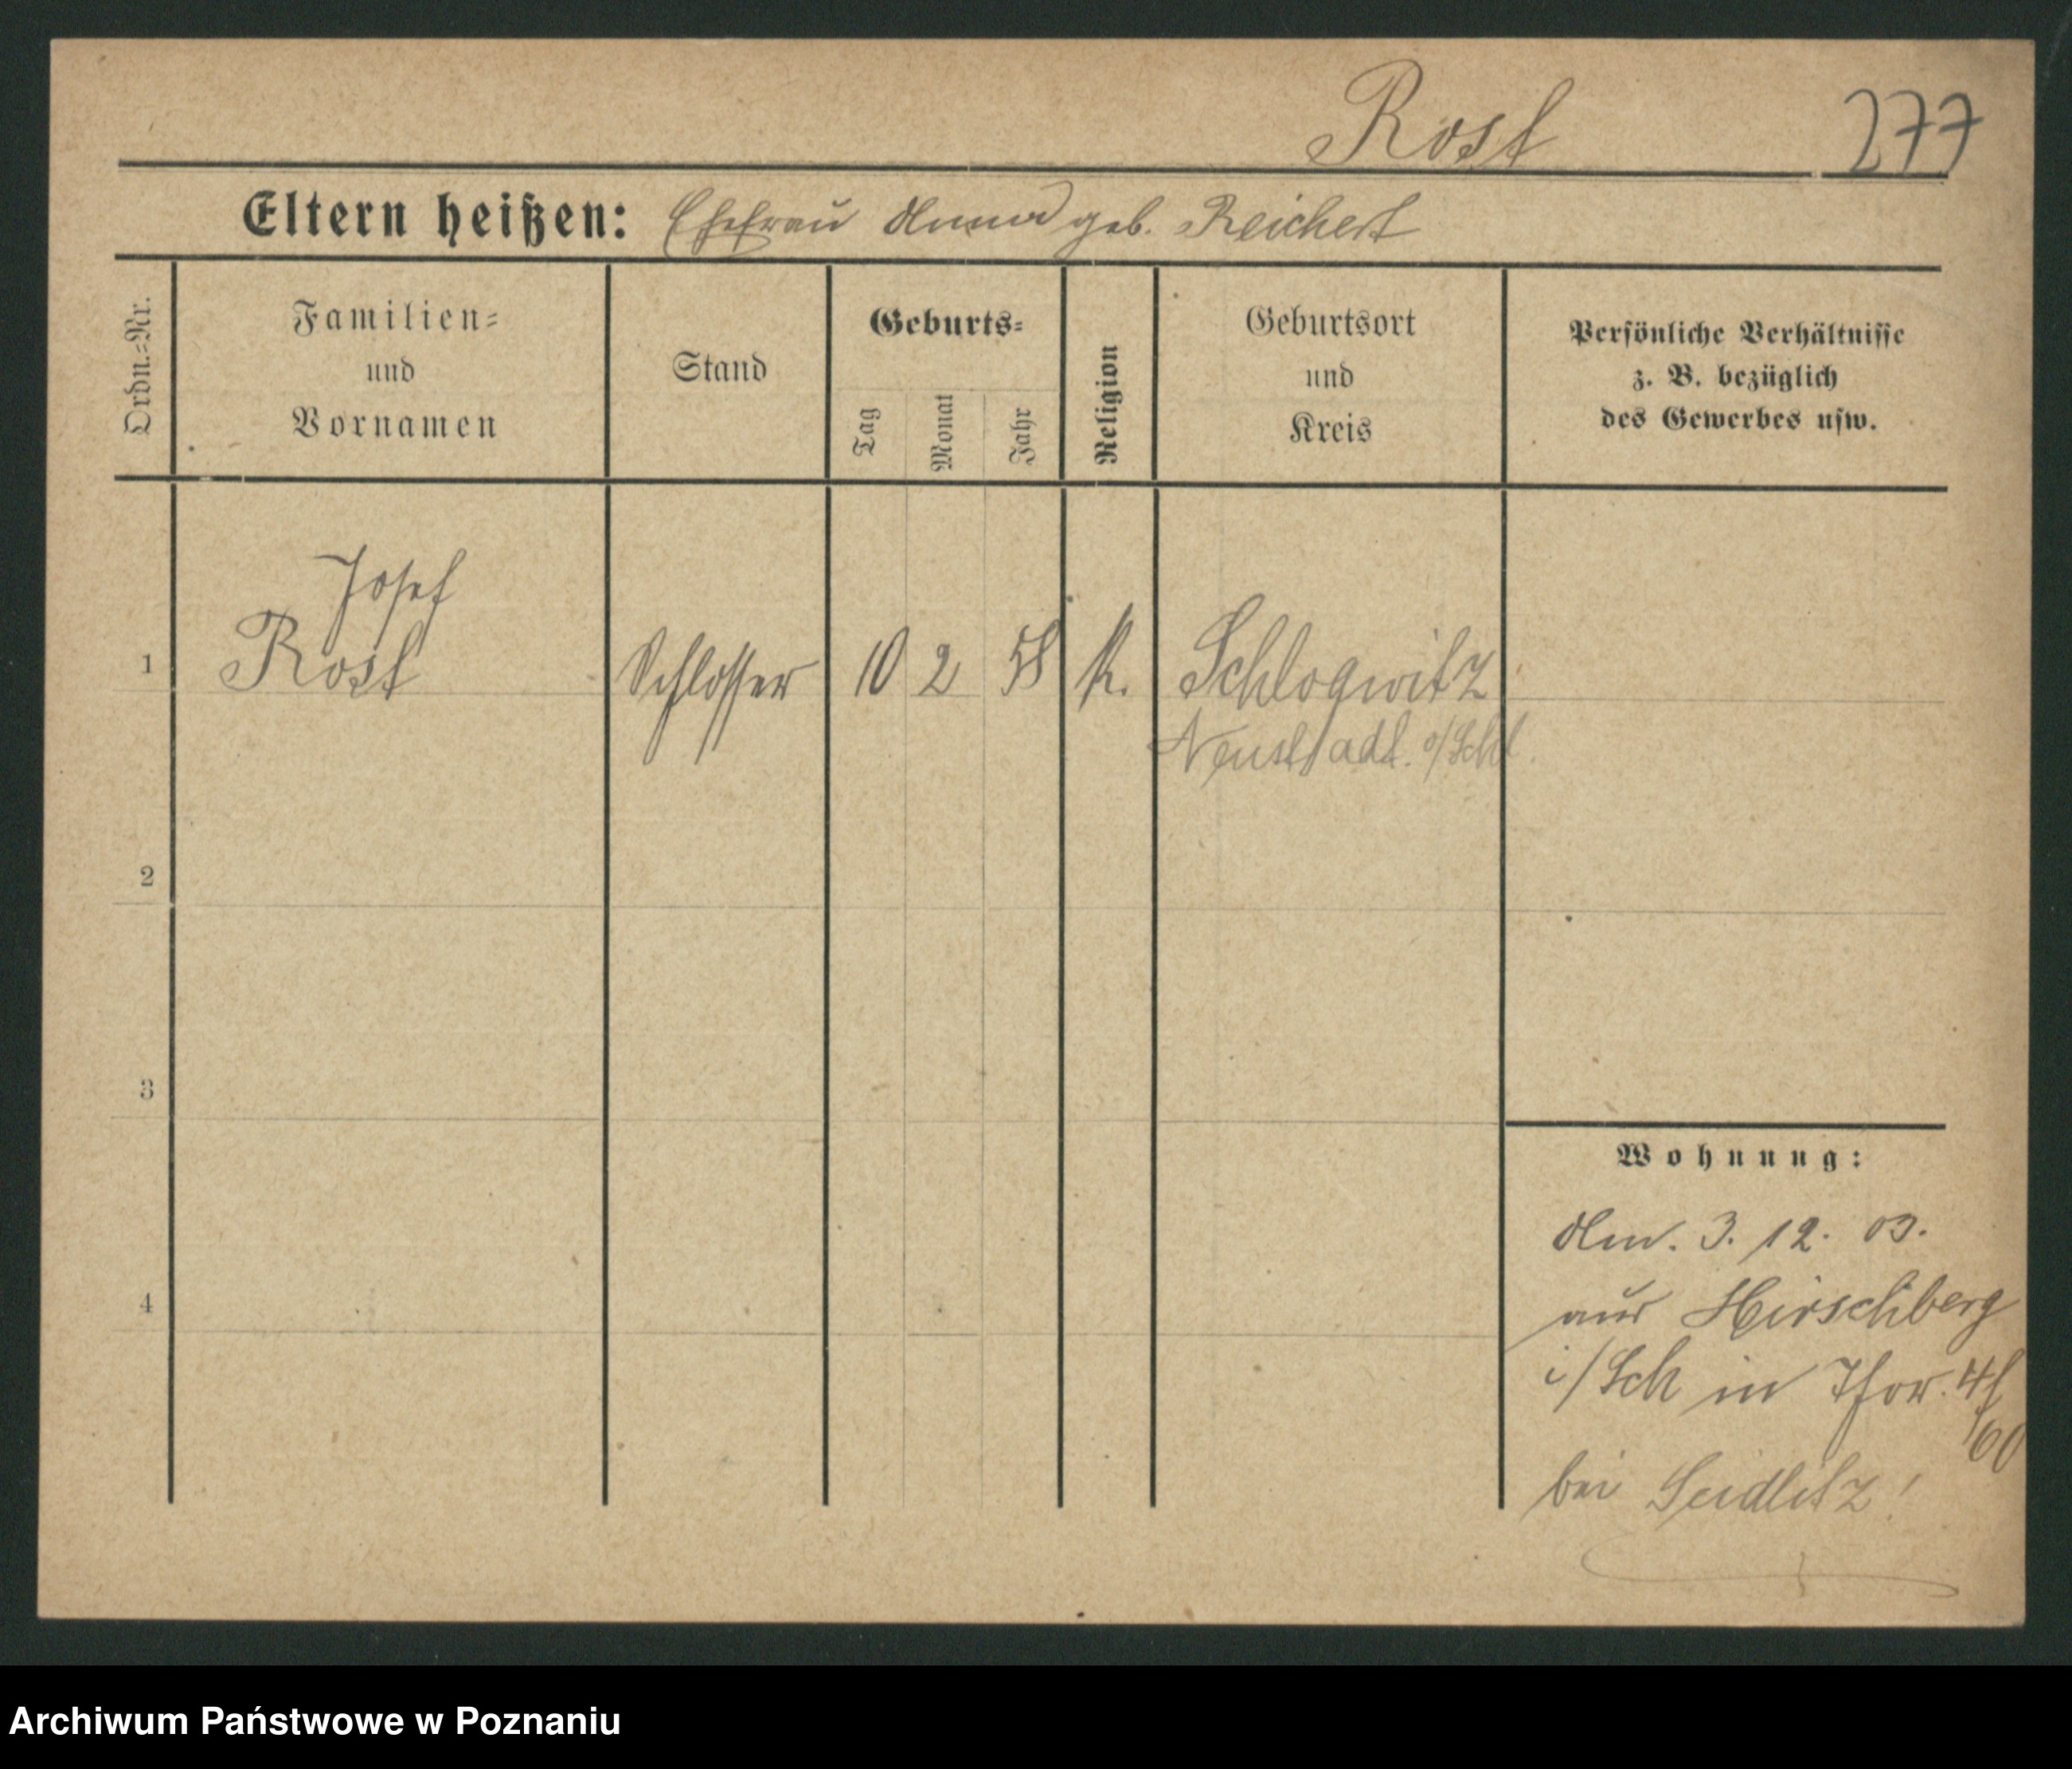 Rost 277
Eltern heißen: Ehefrau Anna geb. Reichert
Ordn.=Nr.
Familien=
und
Vornamen
Stand
Geburts=
Tag
Monat
Jahr
Religion
Geburtsort
und
Kreis
Persönliche Verhältnisse
z. B. bezüglich
des Gewerbes usw.
Josef
1 Rost Schlosser 10 2 58 k. Schlogwitz
Neustadt o/Schl.
2
3
4
Wohnung:
An. 3. 12. 03.
aus Hirschberg
i/Sch in
bei Seidlitz!
Archiwum Państwowe w Poznaniu